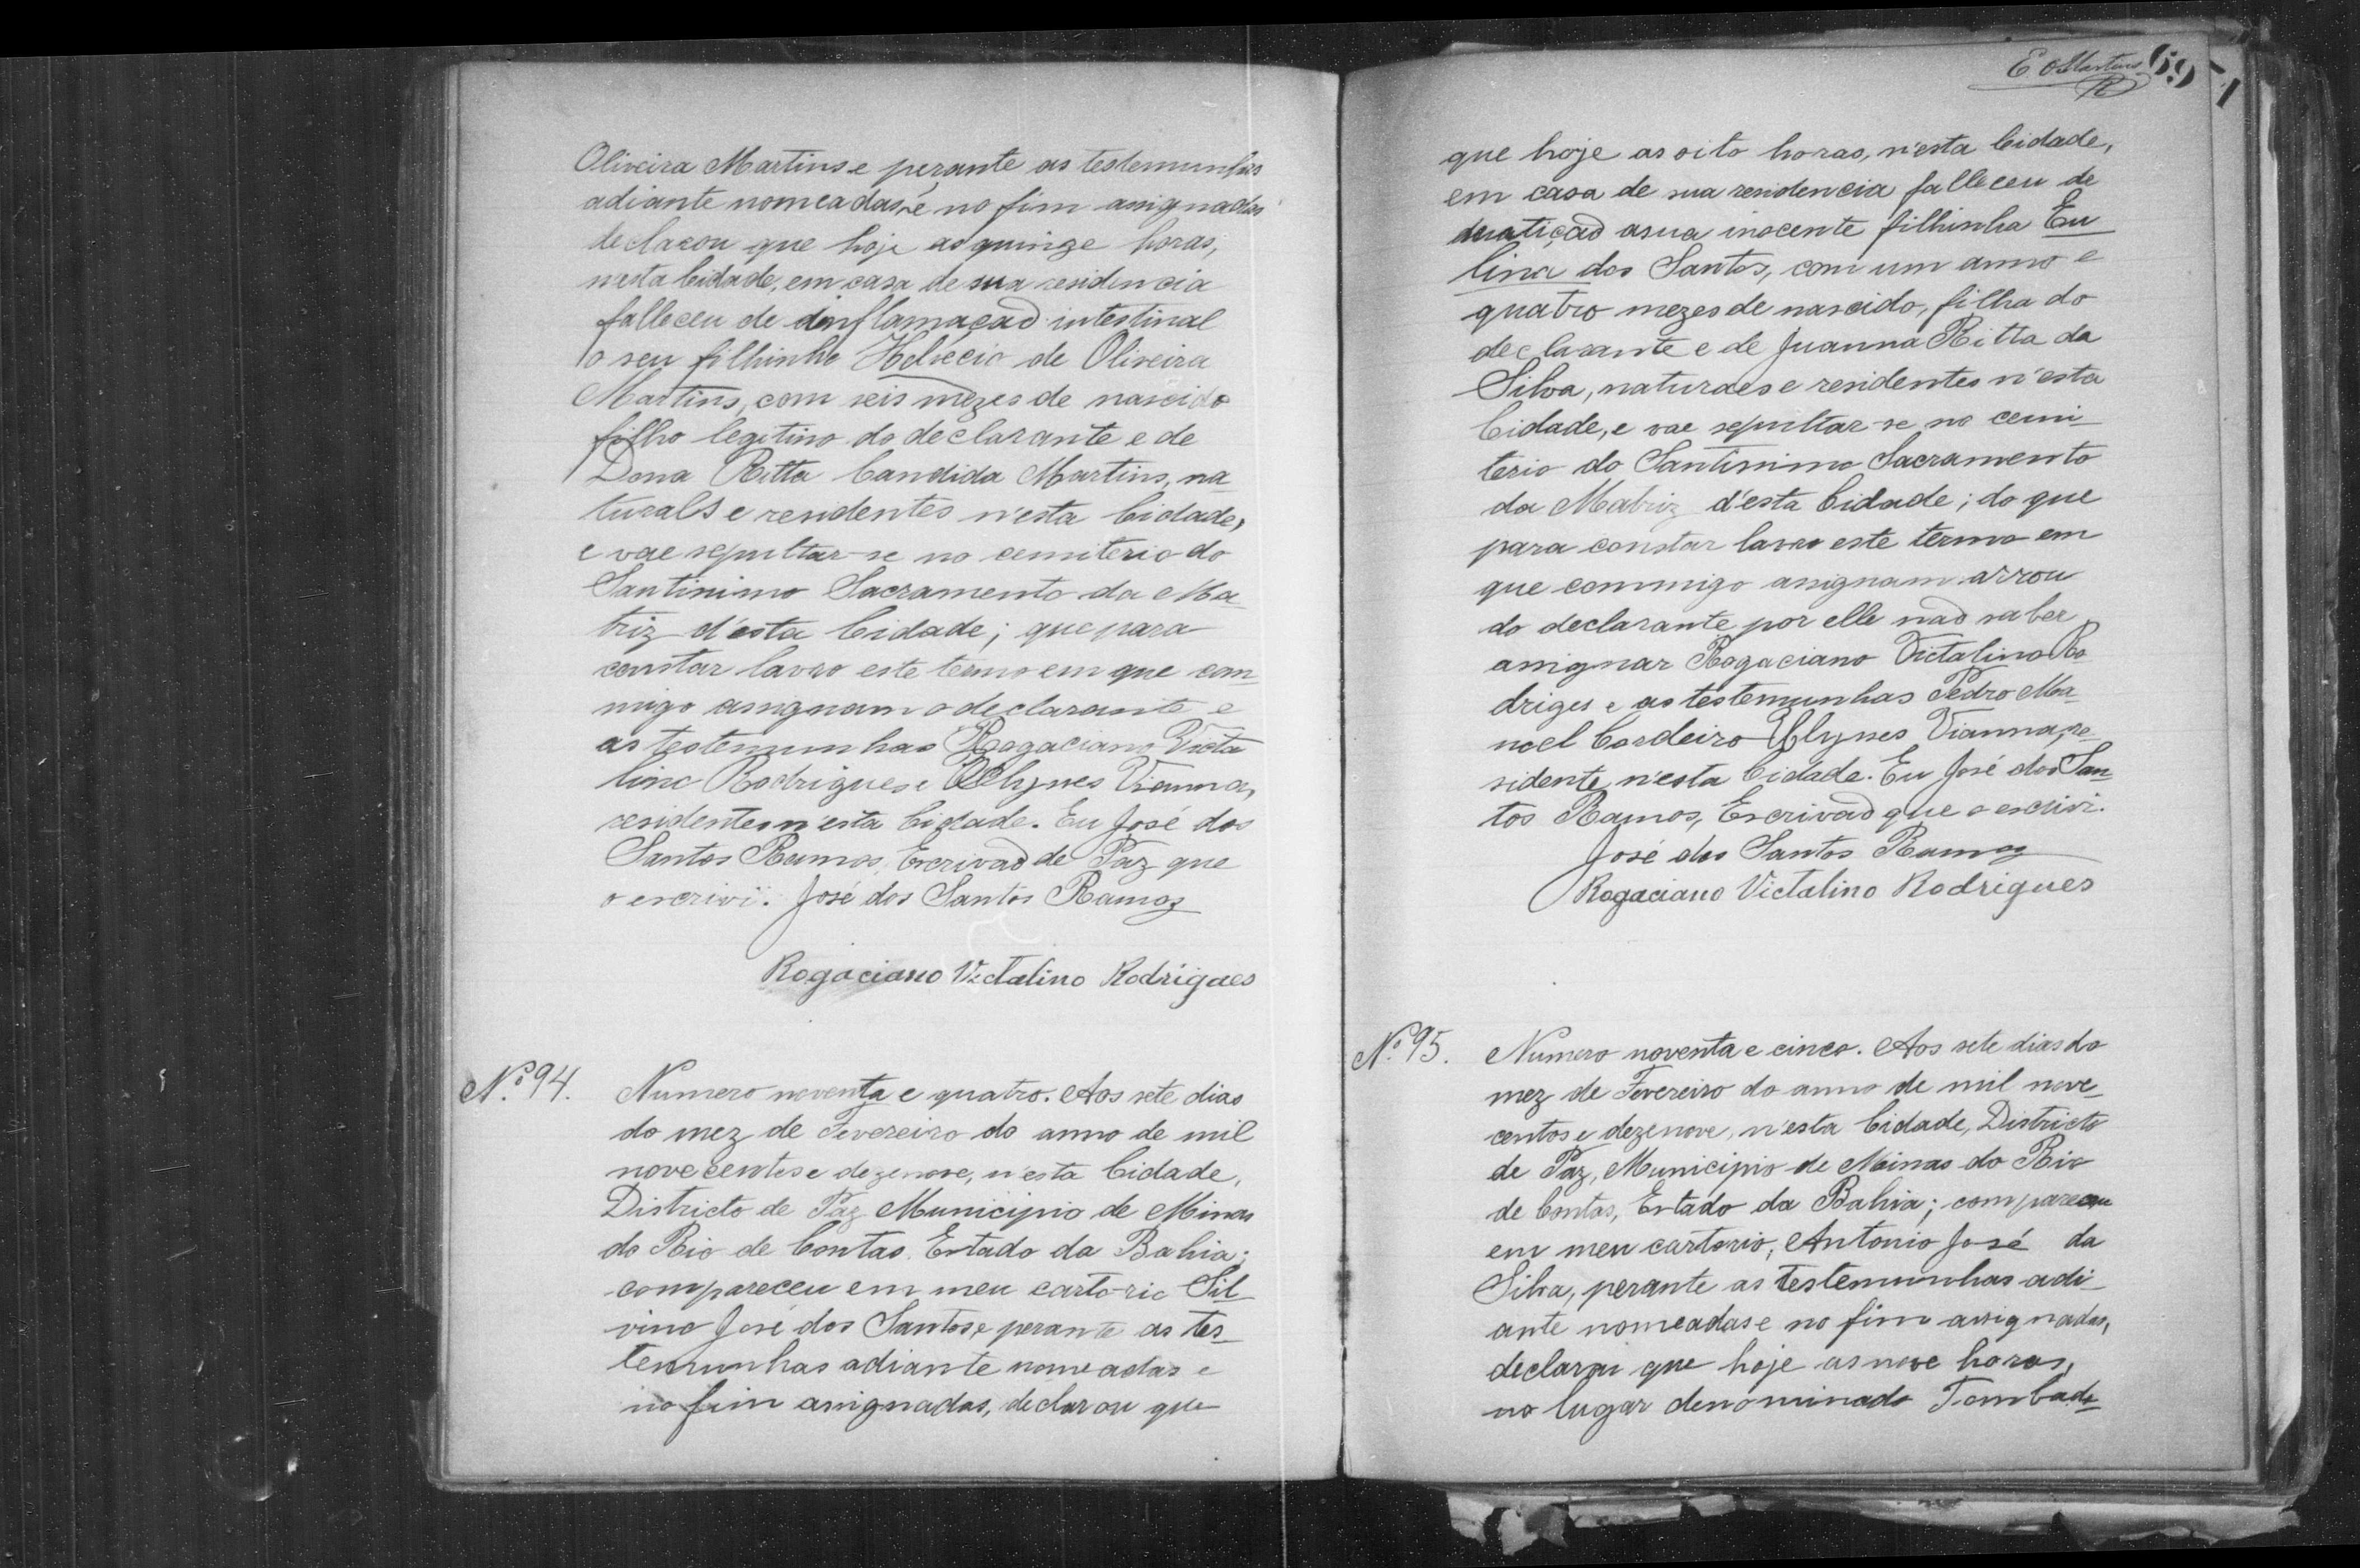 Oliveira Martins e perante as testemunhas
adiante nomeadas, e no fim assignadas
declarou que hoje as quinze horas,
nesta Cidade, em casa de sua residencia
falleceu de inflamaçaõ intestinal
o seu filhinho Helvecio de Oliveira
Martins, com seis mezes de nascido
filho legitimo do declarante e de
Dona Ritta Candida Martins, na_
turaes e residentes n'esta Cidade,
e vae sepultar-se no cemiterio do
Santissimo Sacramento da Ma_
triz d'esta Cidade; que para
constar lavro este termo em que com_
migo assignam o declarante e
as testemunhas Rogaciano Victa
lino Rodrigues e Ulysses Vianna,
residentes n'esta Cidade. Eu José dos
Santos Ramos, Escrivaõ de Paz que
o escrivi. José dos Santos Ramos
Rogaciano Victalino Rodrigues
Nº 94. Numero noventa e quatro. Aos sete dias
do mez de Fevereiro do anno de mil
novecentos e dezenove, n'esta Cidade,
Districto de Paz Municipio de Minas
do Rio de Contas Estado da Bahia;
compareceu em meu cartorio Sil_
vino José dos Santos, e perante as tes_
temunhas adiante nomeadas e
no fim assignadas, declarou que
E. O Martins 69
que hoje as oito horas, n'esta Cidade,
em casa de sua residencia falleceu de
asua inocente filhinha Eu
lina dos Santos, com um anno e
quatro mezes de nascido, filha do
declarante e de Juanna Ritta da
Silva, naturaes e residentes n'esta
Cidade, e vae sepultar-se no cemi_
terio do Santissimo Sacramento
da Matriz d'esta Cidade; do que
para constar lavro este termo em
que commigo assignam arrou
do declarante por elle naõ saber
assignar Rogaciano Victalino Ro
driges e as testemunhas Pedro Ma_
noel Cordeiro Ulysses Vianna, re_
sidente n'esta Cidade. Eu José dos San_
tos Ramos, Escrivaõ que o escrivi.
José dos Santos Ramos
Rogaciano Victalino Rodrigues
Nº 95. Numero noventa e cinco. Aos sete dias do
mez de Fevereiro do anno de mil nove_
centos e dezenove, n'esta Cidade, Districto
de Paz, Municipio de Minas do Rio
de Contas, Estado da Bahia; compareceu
em meu cartorio, Antonio José da
Silva, perante as testemunhas adi_
ante nomeadas e no fim assignadas,
declarou que hoje as nove horas,
no lugar denominado Tombado